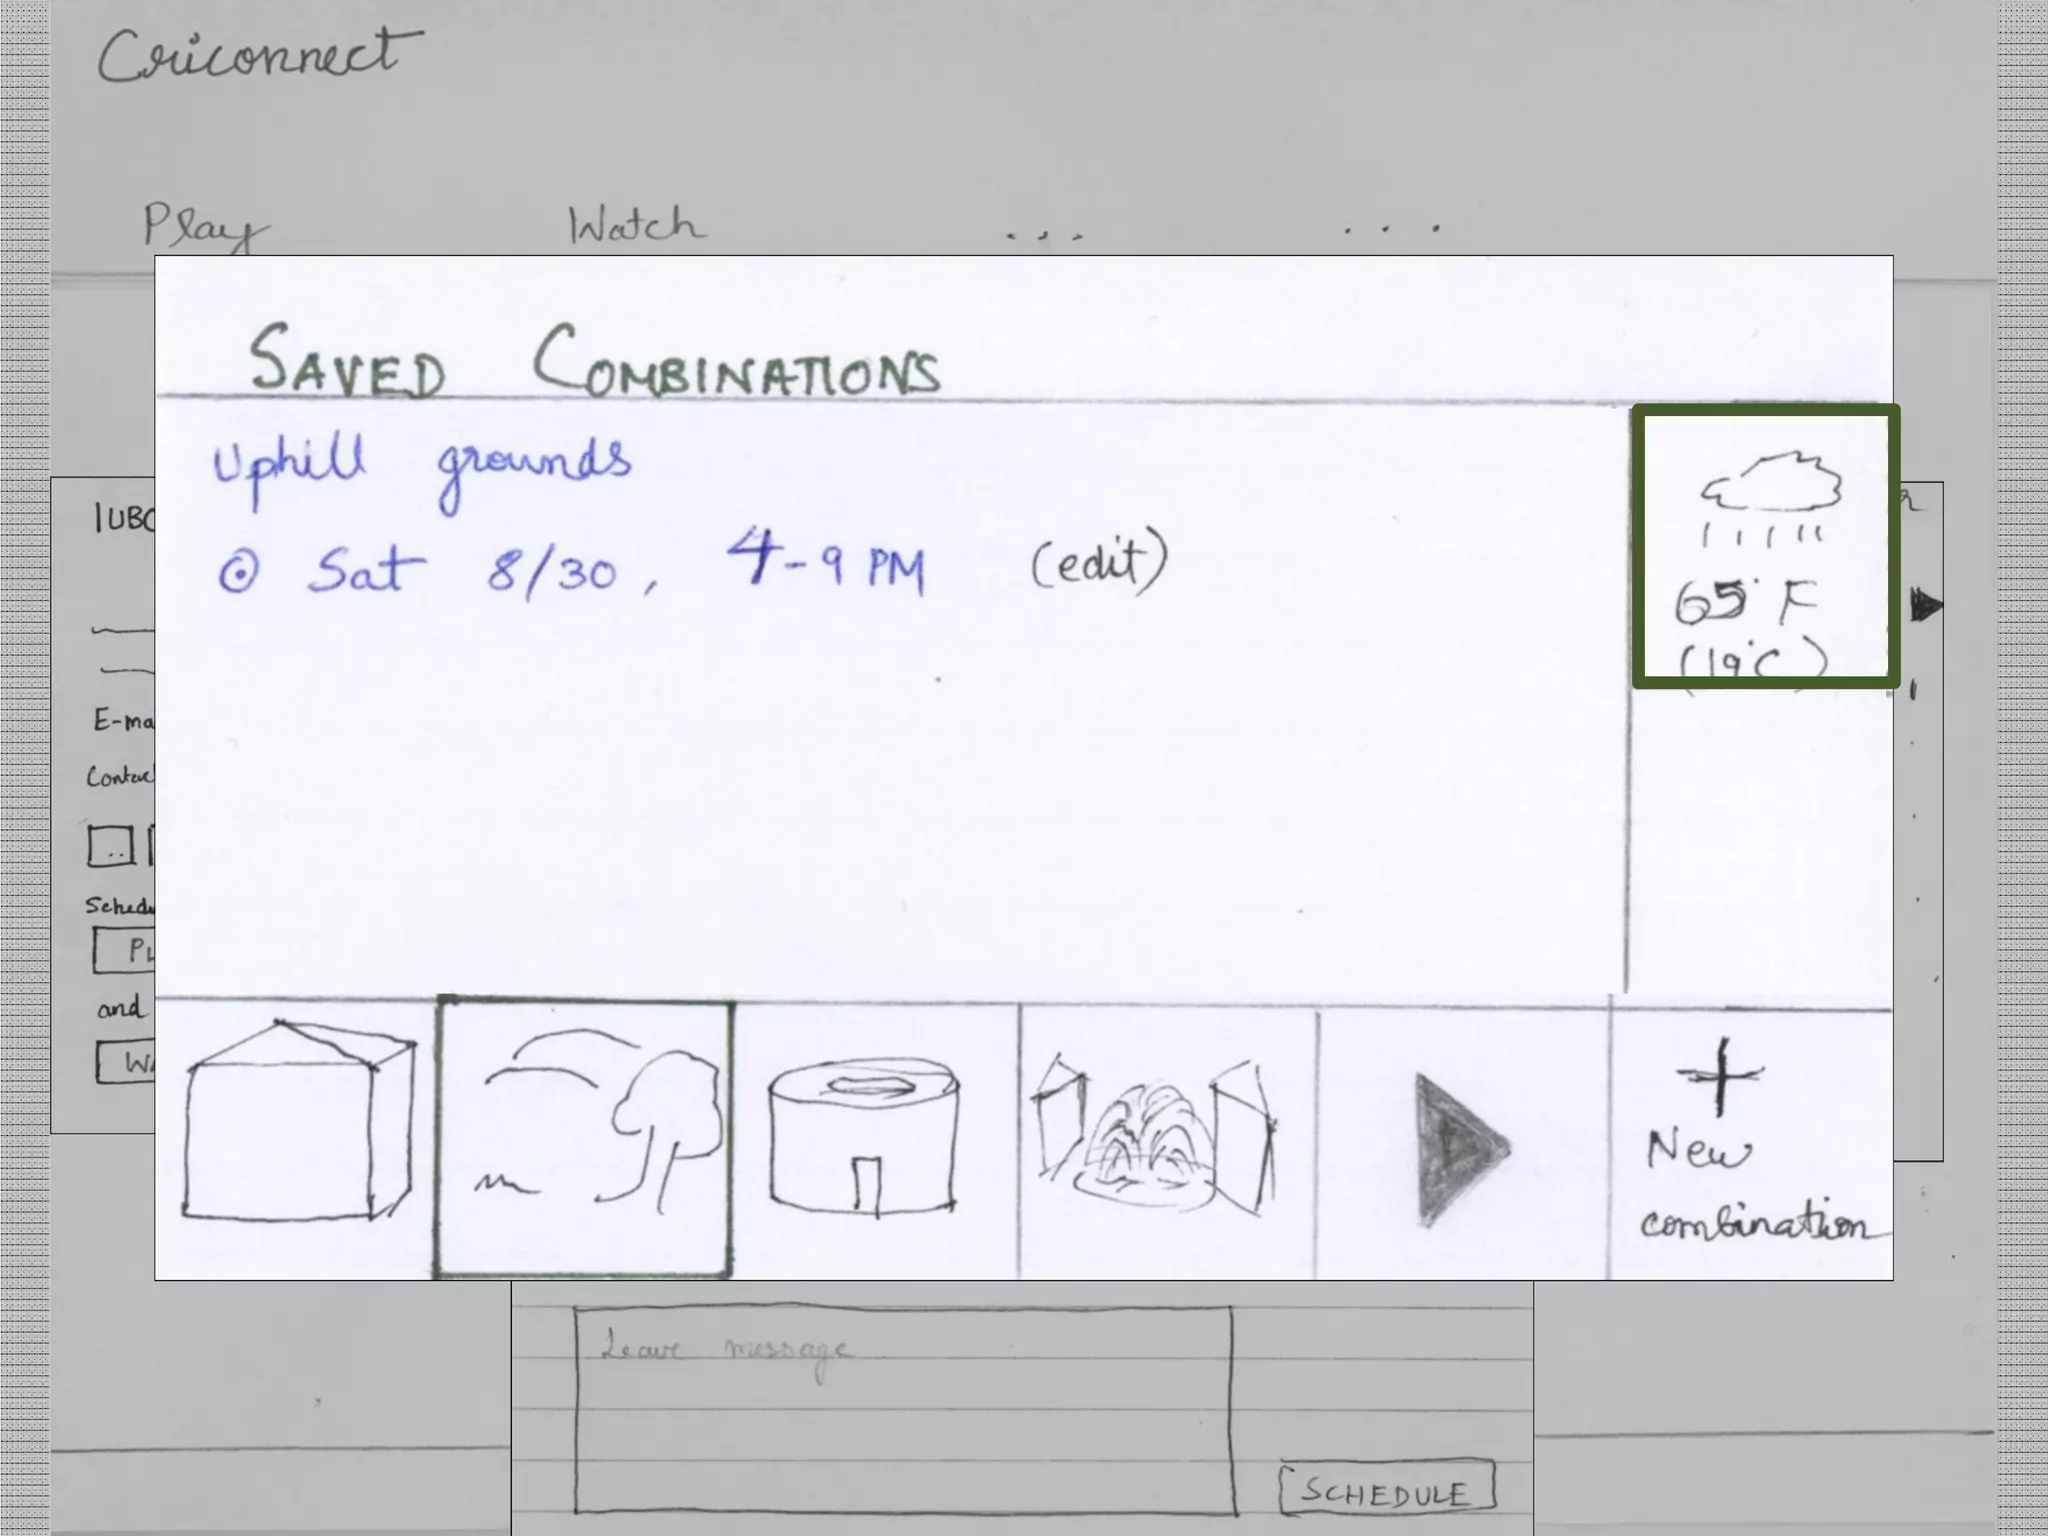 Criconnect
Play Watch ... ...
SAVED COMBINATIONS
Uphill grounds
@ Sat 8/30, 4-9 PM (edit)
65°F
(19°C)
IUBC
E-ma
Contac
..
Schedu
PL
and
WA
+
New
combination
Leave message
SCHEDULE